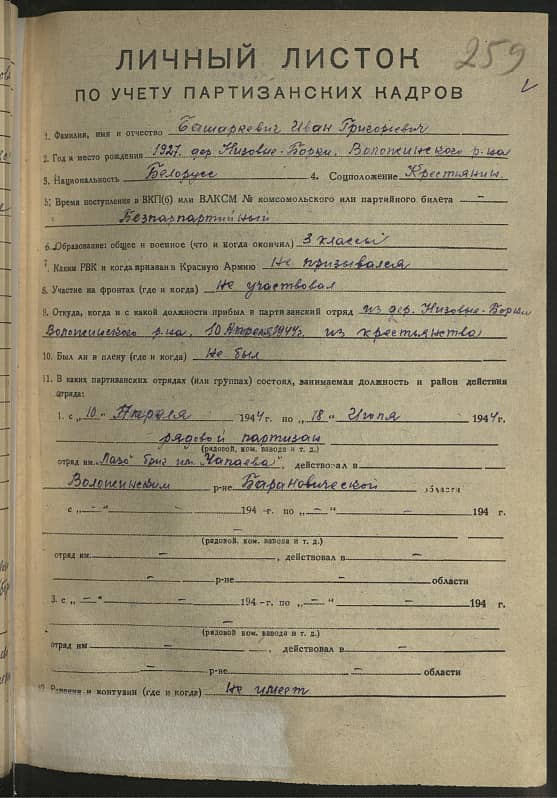 259
ЛИЧНЫЙ ЛИСТОК
ПО УЧЕТУ ПАРТИЗАНСКИХ КАДРОВ
1. Фамилия, имя и отчество Башаркевич Иван Григорьевич
2. Год и место рождения 1927. дер. Низовые-Борки. Воложинского р-на
3. Национальность Белорусс 4. Соцположение Крестьянин.
5. Время поступления в ВКП(б) или ВЛКСМ № комсомольского или партийного билета –
Безпартийный
6. Образование: общее и военное (что и когда окончил) 3 классы
7. Каким РВК и когда призван в Красную Армию Не призывался
8. Участие на фронтах (где и когда) Не участвовал
9. Откуда, когда и с какой должности прибыл в партизанский отряд из дер. Низовые-Борки
Воложинского р-на. 10 Апреля 1944г. из крестьянства
10. Был ли в плену (где и когда) Не был
11. В каких партизанских отрядах (или группах) состоял, занимаемая должность и район действия
отряда:
1. с „10" Апреля 1944 г. по „18" Июля 1944 г.
рядовой партизан
(рядовой, ком. взвода и т. д.)
отряд им. „Лазо" бриг им. Чапаева", действовал в
Воложинским р-не Барановической области
с „–" – 194 -г. по „–" – 194 г.
(рядовой, ком. взвода и т. д.)
отряд им. –, действовал в –
– р-не – области
3. с „–" – 194 -г. по „–" – 194 г.
–
(рядовой ком. взвода и т. д.)
отряд им –, действовал в –
– р-не – области
12. Ранения и контузии (где и когда) Не имеет